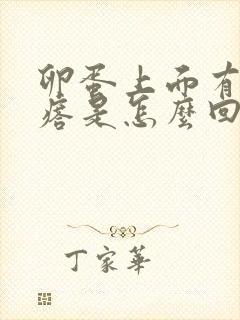 卵蛋上面有
痞是怎麼回
丁家華